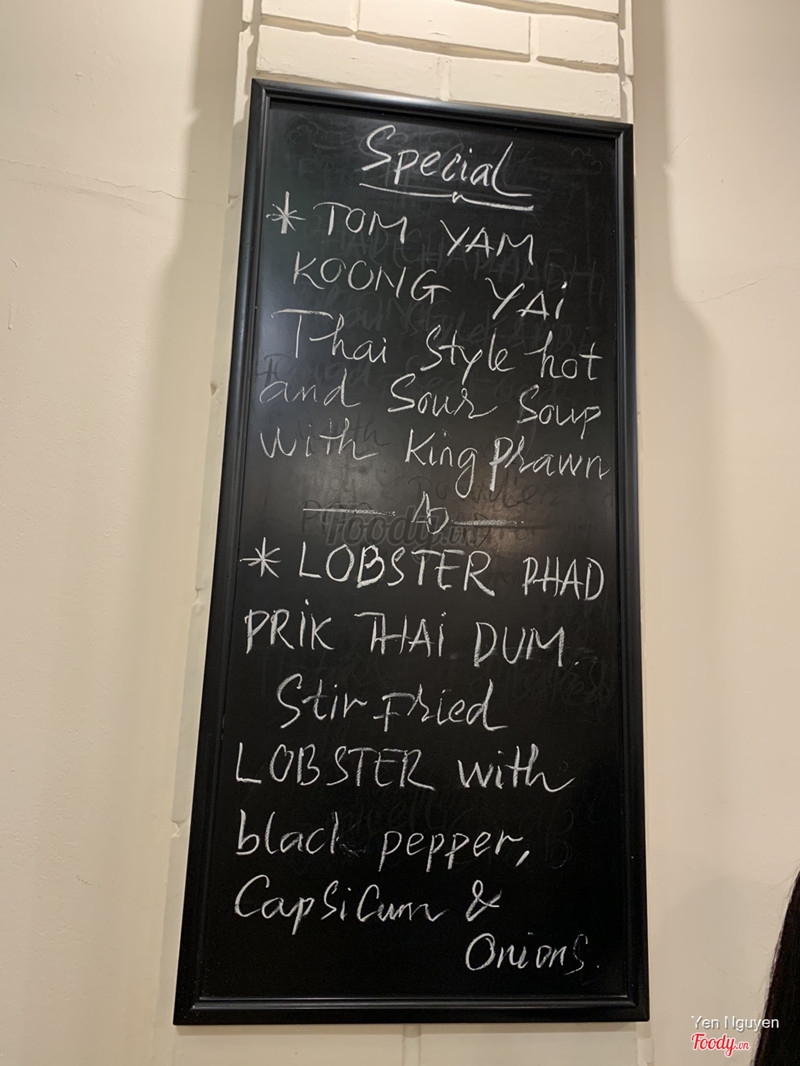 Special
* TOM YAM
KOONG YAi
Thai Style hot
and Sour Soup
with King Prawn
Foody.vn
* LOBSTER PHAD
PRIK THAI DUM.
Stir Fried
LOBSTER with
black pepper,
Capsicum &
Onions.
Yen Nguyen
Foody.vn